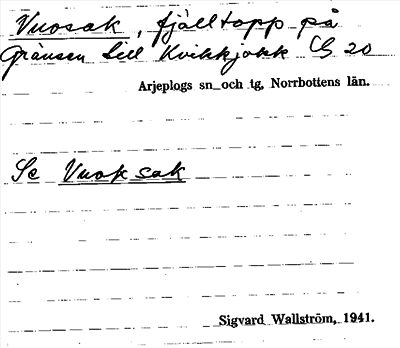 Vuosak, fjälltopp på
Gränsen till Kvikkjokk 20
Arjeplogs sn och tg, Norrbottens län.
Se Vuoksak
Sigvard Wallström, 1941.